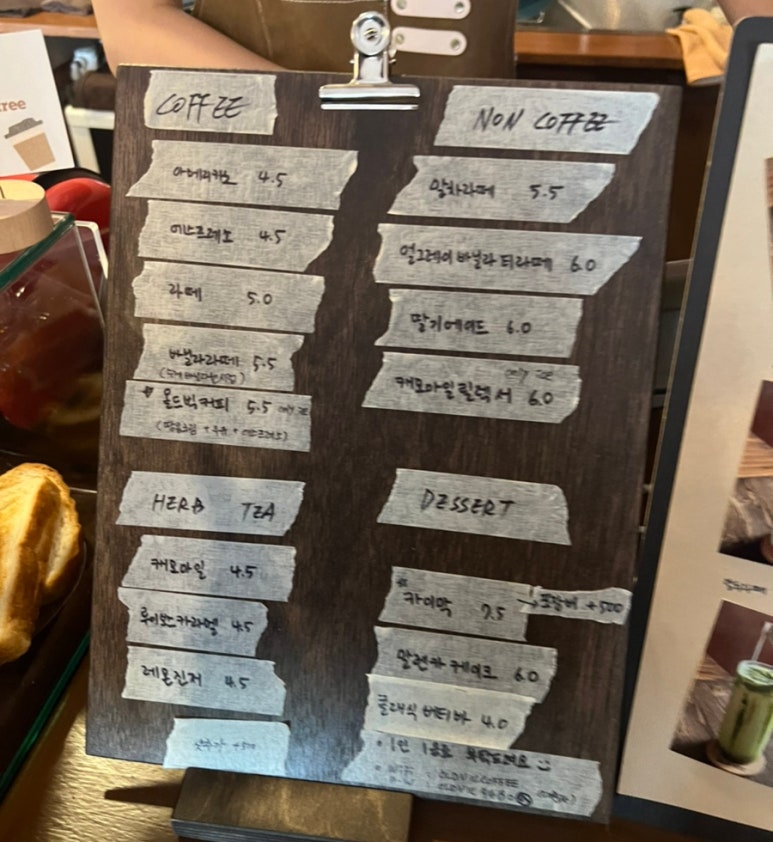 ree
COFFEE
아메리카노 4.5
에스프레소 4.5
라떼 5.0
바닐라라떼 5.5
올드빅커피 5.5 only ICE
HERB TEA
캐모마일 4.5
루이보스카라멜 4.5
레몬진저 4.5
+500
NON COFFEE
말차라떼 5.5
얼그레이바닐라티라떼 6.0
딸기에이드 6.0
only ICE
캐모마일릴렉서 6.0
DESSERT
카이막 7.5 → 포장비 +500
말렌카케이크 6.0
클래식 버터바 4.0
• 1인 1음료 부탁드려요
OLDVICCOFFEE